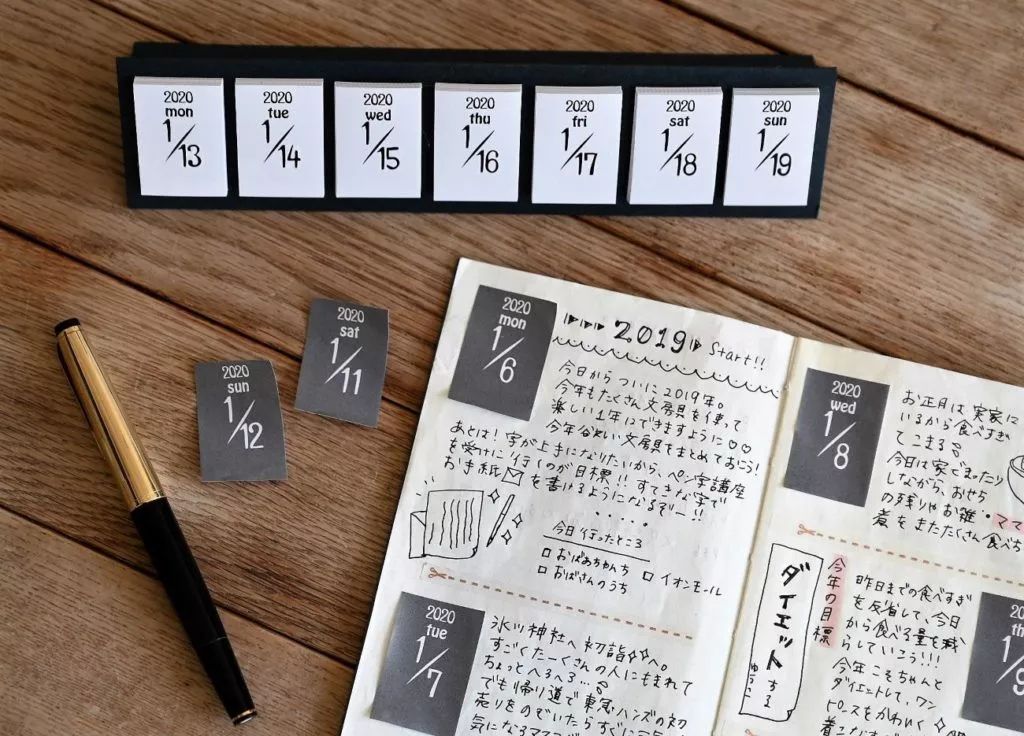 2020
mon
1/13
2020
tue
1/14
2020
wed
1/15
2020
thu
1/16
2020
fri
1/17
2020
sat
1/18
2020
sun
1/19
2020
sat
1/11
2020
sun
1/12
2020
mon
1/6
2019 Start!!
今日からついに2019年。
今年もたくさん文房具を使って
楽しい1年にできますように♡♡
今年欲しい文房具をまとめておこう!
あとは!字が上手になりたいから、ペン字講座
を受けに行くのが目標!!すてきな字で
お手紙を書けるようになるぞー!!
今日行ったところ
□おばあちゃんち □イオンモール
□おばさんのうち
2020
tue
1/7
氷川神社へ初詣へ。
すごくたーくさんの人にもまれて
ちょっとへろへろ…
でも帰り道で東急ハンズの初
売りをのぞいたらすぐに
気になる
2020
wed
1/8
お正月は実家に
いるから食べすぎ
てこまる
今日は家でまったり
しながら、おせち
の残りやお雑
煮をまたたくさん食べち
ママ
ダイエットする
ゆうこ
今年の目標
昨日までの食べすぎ
を反省して、今日
から食べる量を減
らしていこう!!!
今年こそちゃんと
ダイエットして、ワン
ピースをかわいく
2020
th
1/9